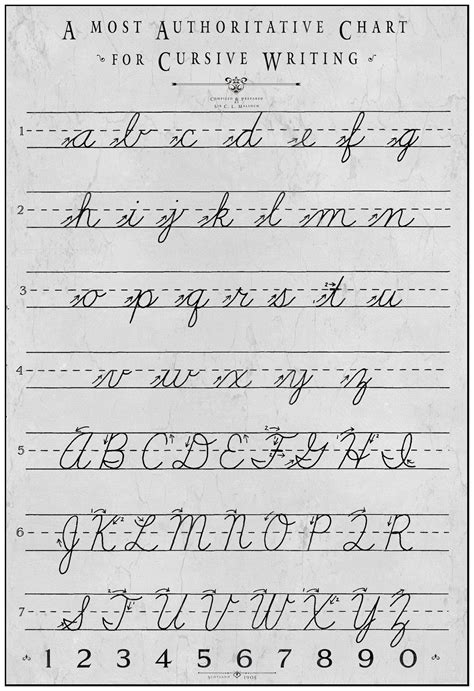 A MOST AUTHORITATIVE CHART
FOR CURSIVE WRITING
COMPILED & PREPARED
1 a b c d e f g
2 h i j k l m n
3 o p q r s t u
4 v w x y z
5 A B C D E F G H I
6 J K L M N O P Q R
7 S T U V W X Y Z
1 2 3 4 5 6 7 8 9 0